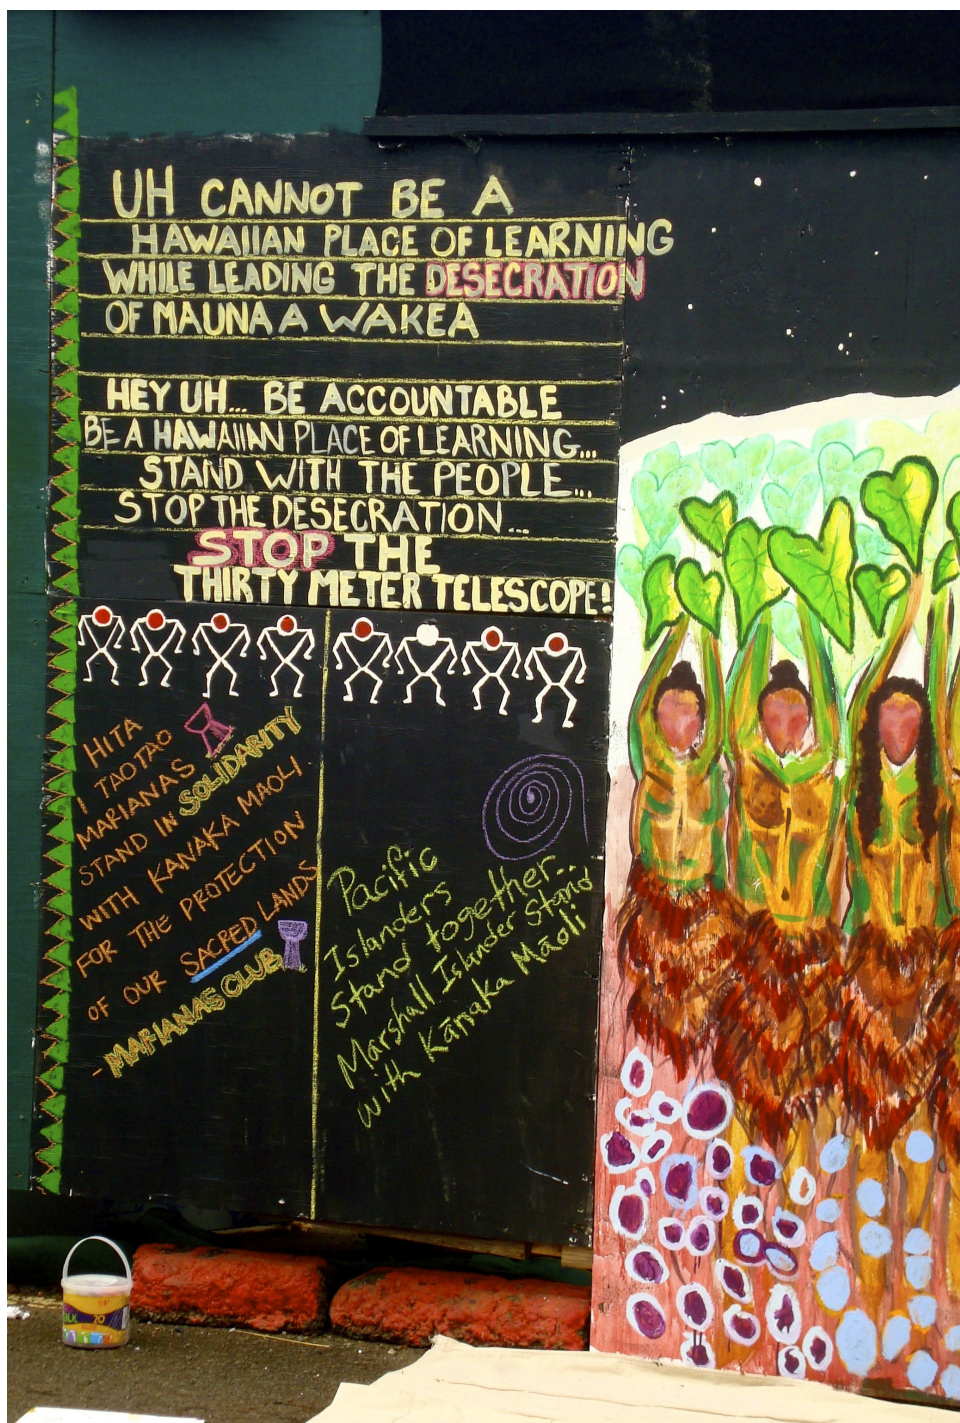 UH CANNOT BE A
HAWAIIAN PLACE OF LEARNING
WHILE LEADING THE DESECRATION
OF MAUNA A WAKEA
HEY UH... BE ACCOUNTABLE
BE A HAWAIIAN PLACE OF LEARNING...
STAND WITH THE PEOPLE...
STOP THE DESECRATION...
STOP THE
THIRTY METER TELESCOPE!
HITA
I TAOTAO
MARIANAS
STAND IN SOLIDARITY
WITH KANAKA MAOLI
FOR THE PROTECTION
OF OUR SACRED LANDS
- MARIANAS CLUB
Pacific
Islanders
Stand together...
Marshall Islander Stand
with Kānaka Māoli
20